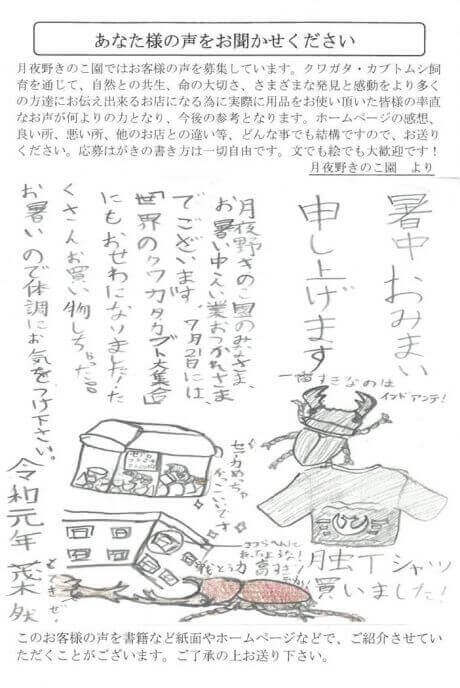 あなた様の声をお聞かせください
月夜野きのこ園ではお客様の声を募集しています。クワガタ・カブトムシ飼
育を通じて、自然との共生、命の大切さ、さまざまな発見と感動をより多く
の方達にお伝え出来るお店になる為に実際に用品をお使い頂いた皆様の率直
なお声が何よりの力となり、今後の参考となります。ホームページの感想、
良い所、悪い所、他のお店との違い等、どんな事でも結構ですので、お送り
ください。応募はがきの書き方は一切自由です。文でも絵でも大歓迎です！
月夜野きのこ園 より
暑中おみまい
申し上げます
月夜野きのこ園のみなさま、
お暑い中えい業おつかれさま
でございます。7月21日には、
「世界のクワガタカブト大集合」
にもおせわになりました！た
くさんお買い物しちゃった。
お暑いので体調にお気をつけ下さい。
令和元年
一番すきなのは
インドアンテ！
虫Tシャツ
買いました！
このお客様の声を書籍など紙面やホームページなどで、ご紹介させてい
ただくことがございます。ご了承の上お送り下さい。